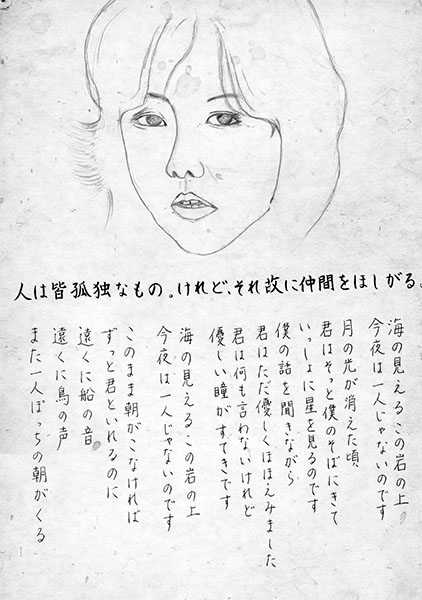 人は皆孤独なもの。けれど、それ故に仲間をほしがる。
海の見えるこの岩の上
今夜は一人じゃないのです
月の光が消えた頃
君はそっと僕のそばにきて
いっしょに星を見るのです
僕の話を聞きながら
君はただ優しくほほえみました
君は何も言わないけれど
優しい瞳がすてきです
海の見えるこの岩の上
今夜は一人じゃないのです
このまま朝がこなければ
ずっと君といれるのに
遠くに船の音
遠くに鳥の声
また一人ぼっちの朝がくる